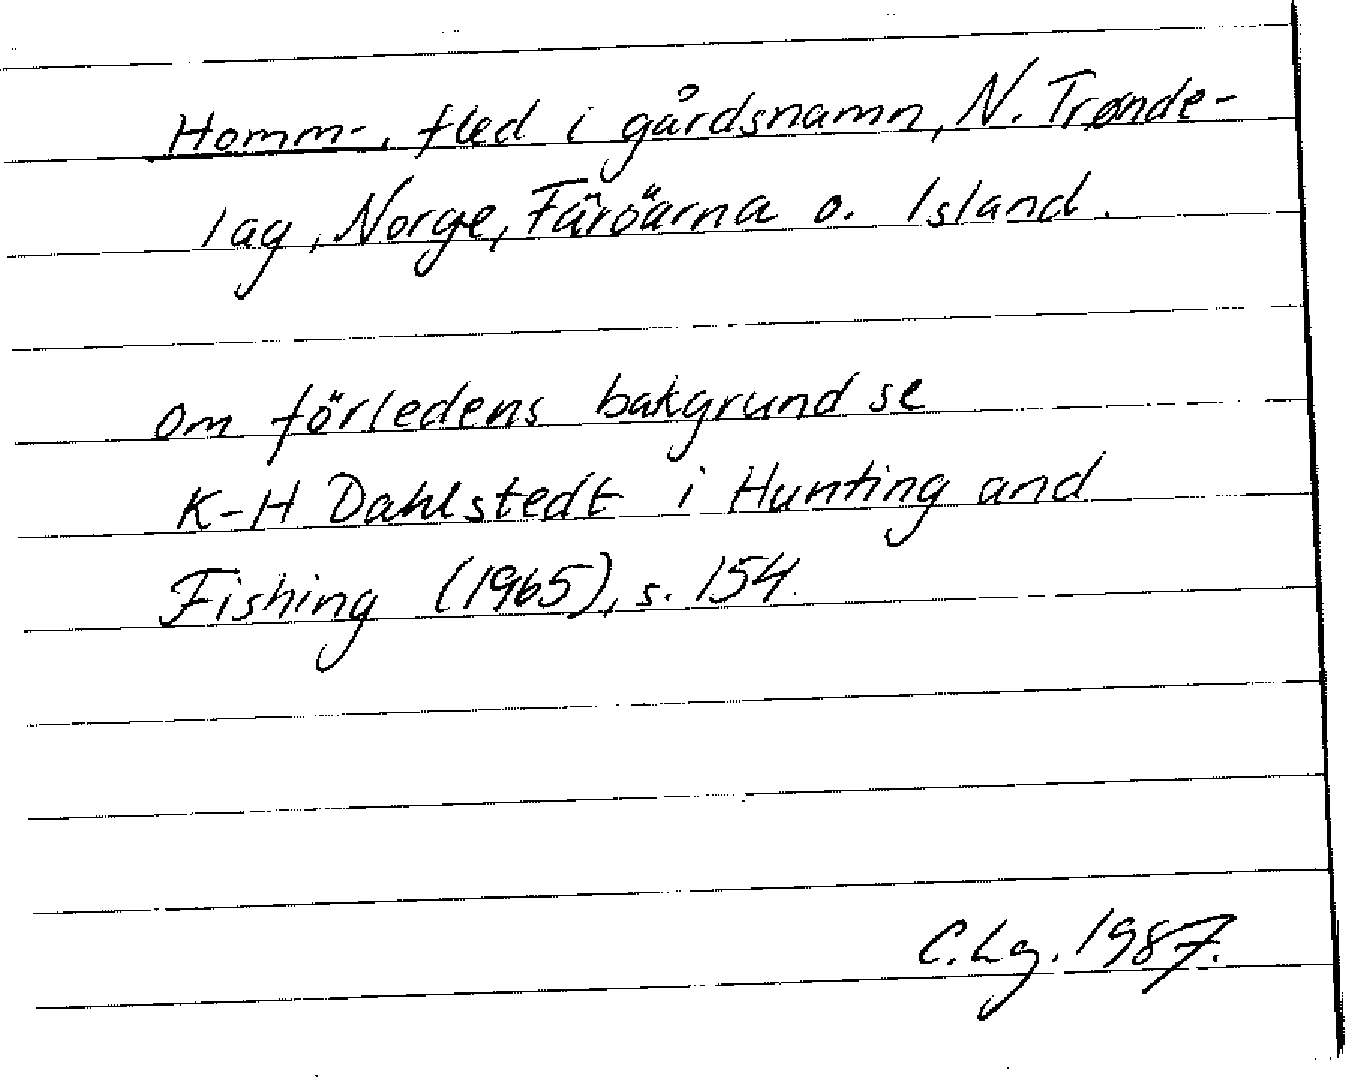 Homm-, fled i gårdsnamn, N. Trønde-
lag, Norge, Färöarna o. Island.
om förledens bakgrund se
K-H Dahlstedt i Hunting and
Fishing (1965), s. 154.
C. Lg. 1987.